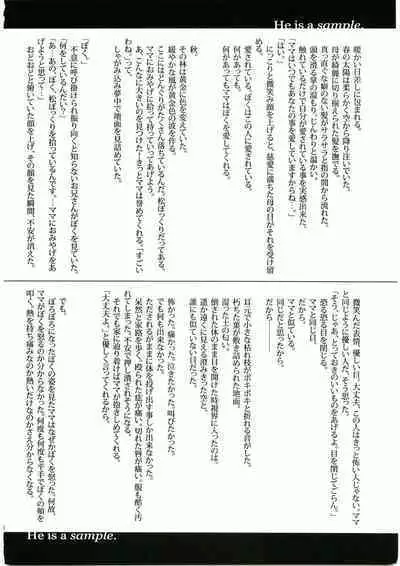 He is a sample.
暖かい日差しに包まれる。
春の太陽は柔らかく空から降り注いでいた。
母が綺麗に切り揃えられた髪を撫でる。
真っ直ぐな癖のない髪がサラサラと指の間から流れた。
頭を滑る掌の温もり。じんわりと温かい。
触れているだけで自分が愛されている事を実感出来た。
「ママはいつでもあなたの事を愛していますからね…。」
「はい。」
にっこりと微笑み顔を上げると、慈愛に満ちた母の目がそれを受け留
める。
愛されている。ぼくはこの人に愛されている。
何があってもママはぼくを愛してくれる。
秋。
その林は黄金に色を変えていた。
緩やかな風が黄金色の波を作る。
ここにはどんぐりがたくさん落ちているんだ。松ぼっくりだってある。
ママにおみやげに拾って持っていってあげよう。
あ、こんなに大きいのを見つけた！きっとママは誉めてくれる。「すごい
わね。」って。
しゃがみ込み夢中で地面を見詰めていた。
「ぼく。」
不意に呼び掛けられ振り向くと知らないお兄さんがぼくを見ていた。
「何をしているんだい？」
「あ…あの。ぼく、松ぼっくりを拾っているんです。…ママにおみやげをあ
げようと思って…。」
おどおどと俯いていた顔を上げ、その顔を見た瞬間、不安が消えた。
微笑んだ表情、優しい目。大丈夫、この人はきっと怖い人じゃない。ママ
と同じように優しい人だ。そう思った。
「そう、じゃあ、とっておきのいいものをあげるよ。目を閉じてごらん。」
恐る恐る目を閉じる。
ママと同じ目。
ママと似ている。
同じだと思ったから。
耳元で小さな枯れ枝がポキポキと折れる音がした。
朽ちた葉が敷き詰められた地面。
湿った土の匂い。
倒された体のまま目を開けた時視界に入ったのは、
遥か遠くに見える澄みきった空と、
誰にも似ていない目だった。
怖かった。痛かった。泣きたかった。叫びたかった。
でも何も出来なかった。
ただされるがままに体を投げ出す事しか出来なかった。
呆然と家路を歩く。殴られた痣が痛い。切れた唇が痛い。服も酷く汚
れてしまった。不安で心が潰されてしまいそうになる。
それでも家に辿り着けばママが抱きしめてくれる。
「大丈夫よ。」と優しく言ってくれるから。
でも。
ぼろぼろになったぼくの姿を見たママはなぜかぼくを怒った。何故、
ママがぼくを怒るのか分からなかった。何度も何度も平手でぼくの頬を
叩く。熱を持ち痛みなのか熱いだけなのかさえ分からなくなる。
He is a sample.